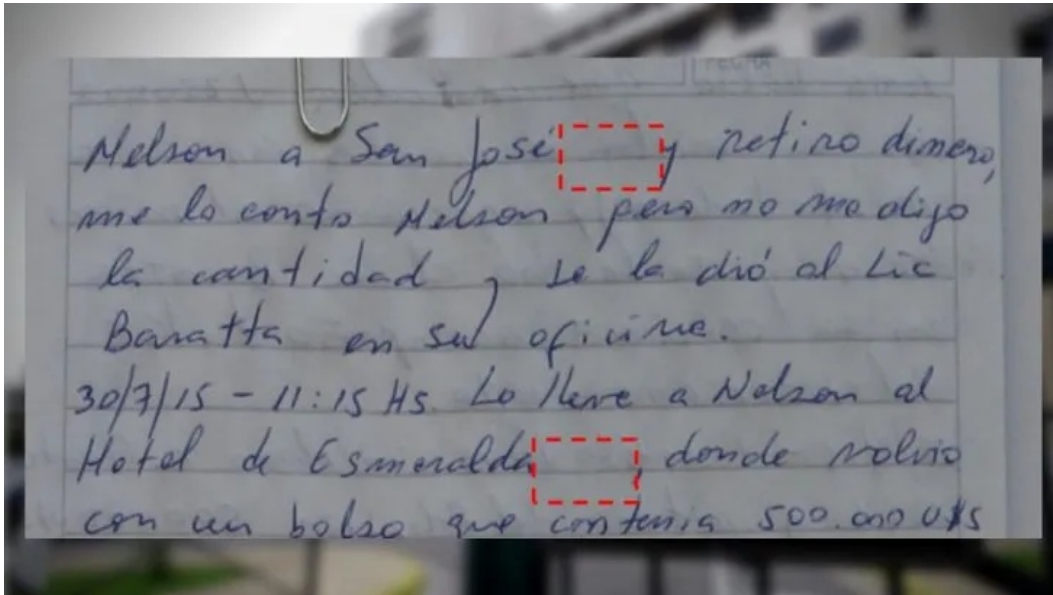 FECHA
Nelson a San José y retiro dinero,
me lo conto Nelson pero no me dijo
la cantidad y se la dió al Lic
Baratta en su oficina.
30/7/15 - 11:15 Hs. Lo lleve a Nelson al
Hotel de Esmeralda , donde volvio
con un bolso que contenia 500.000 U$S